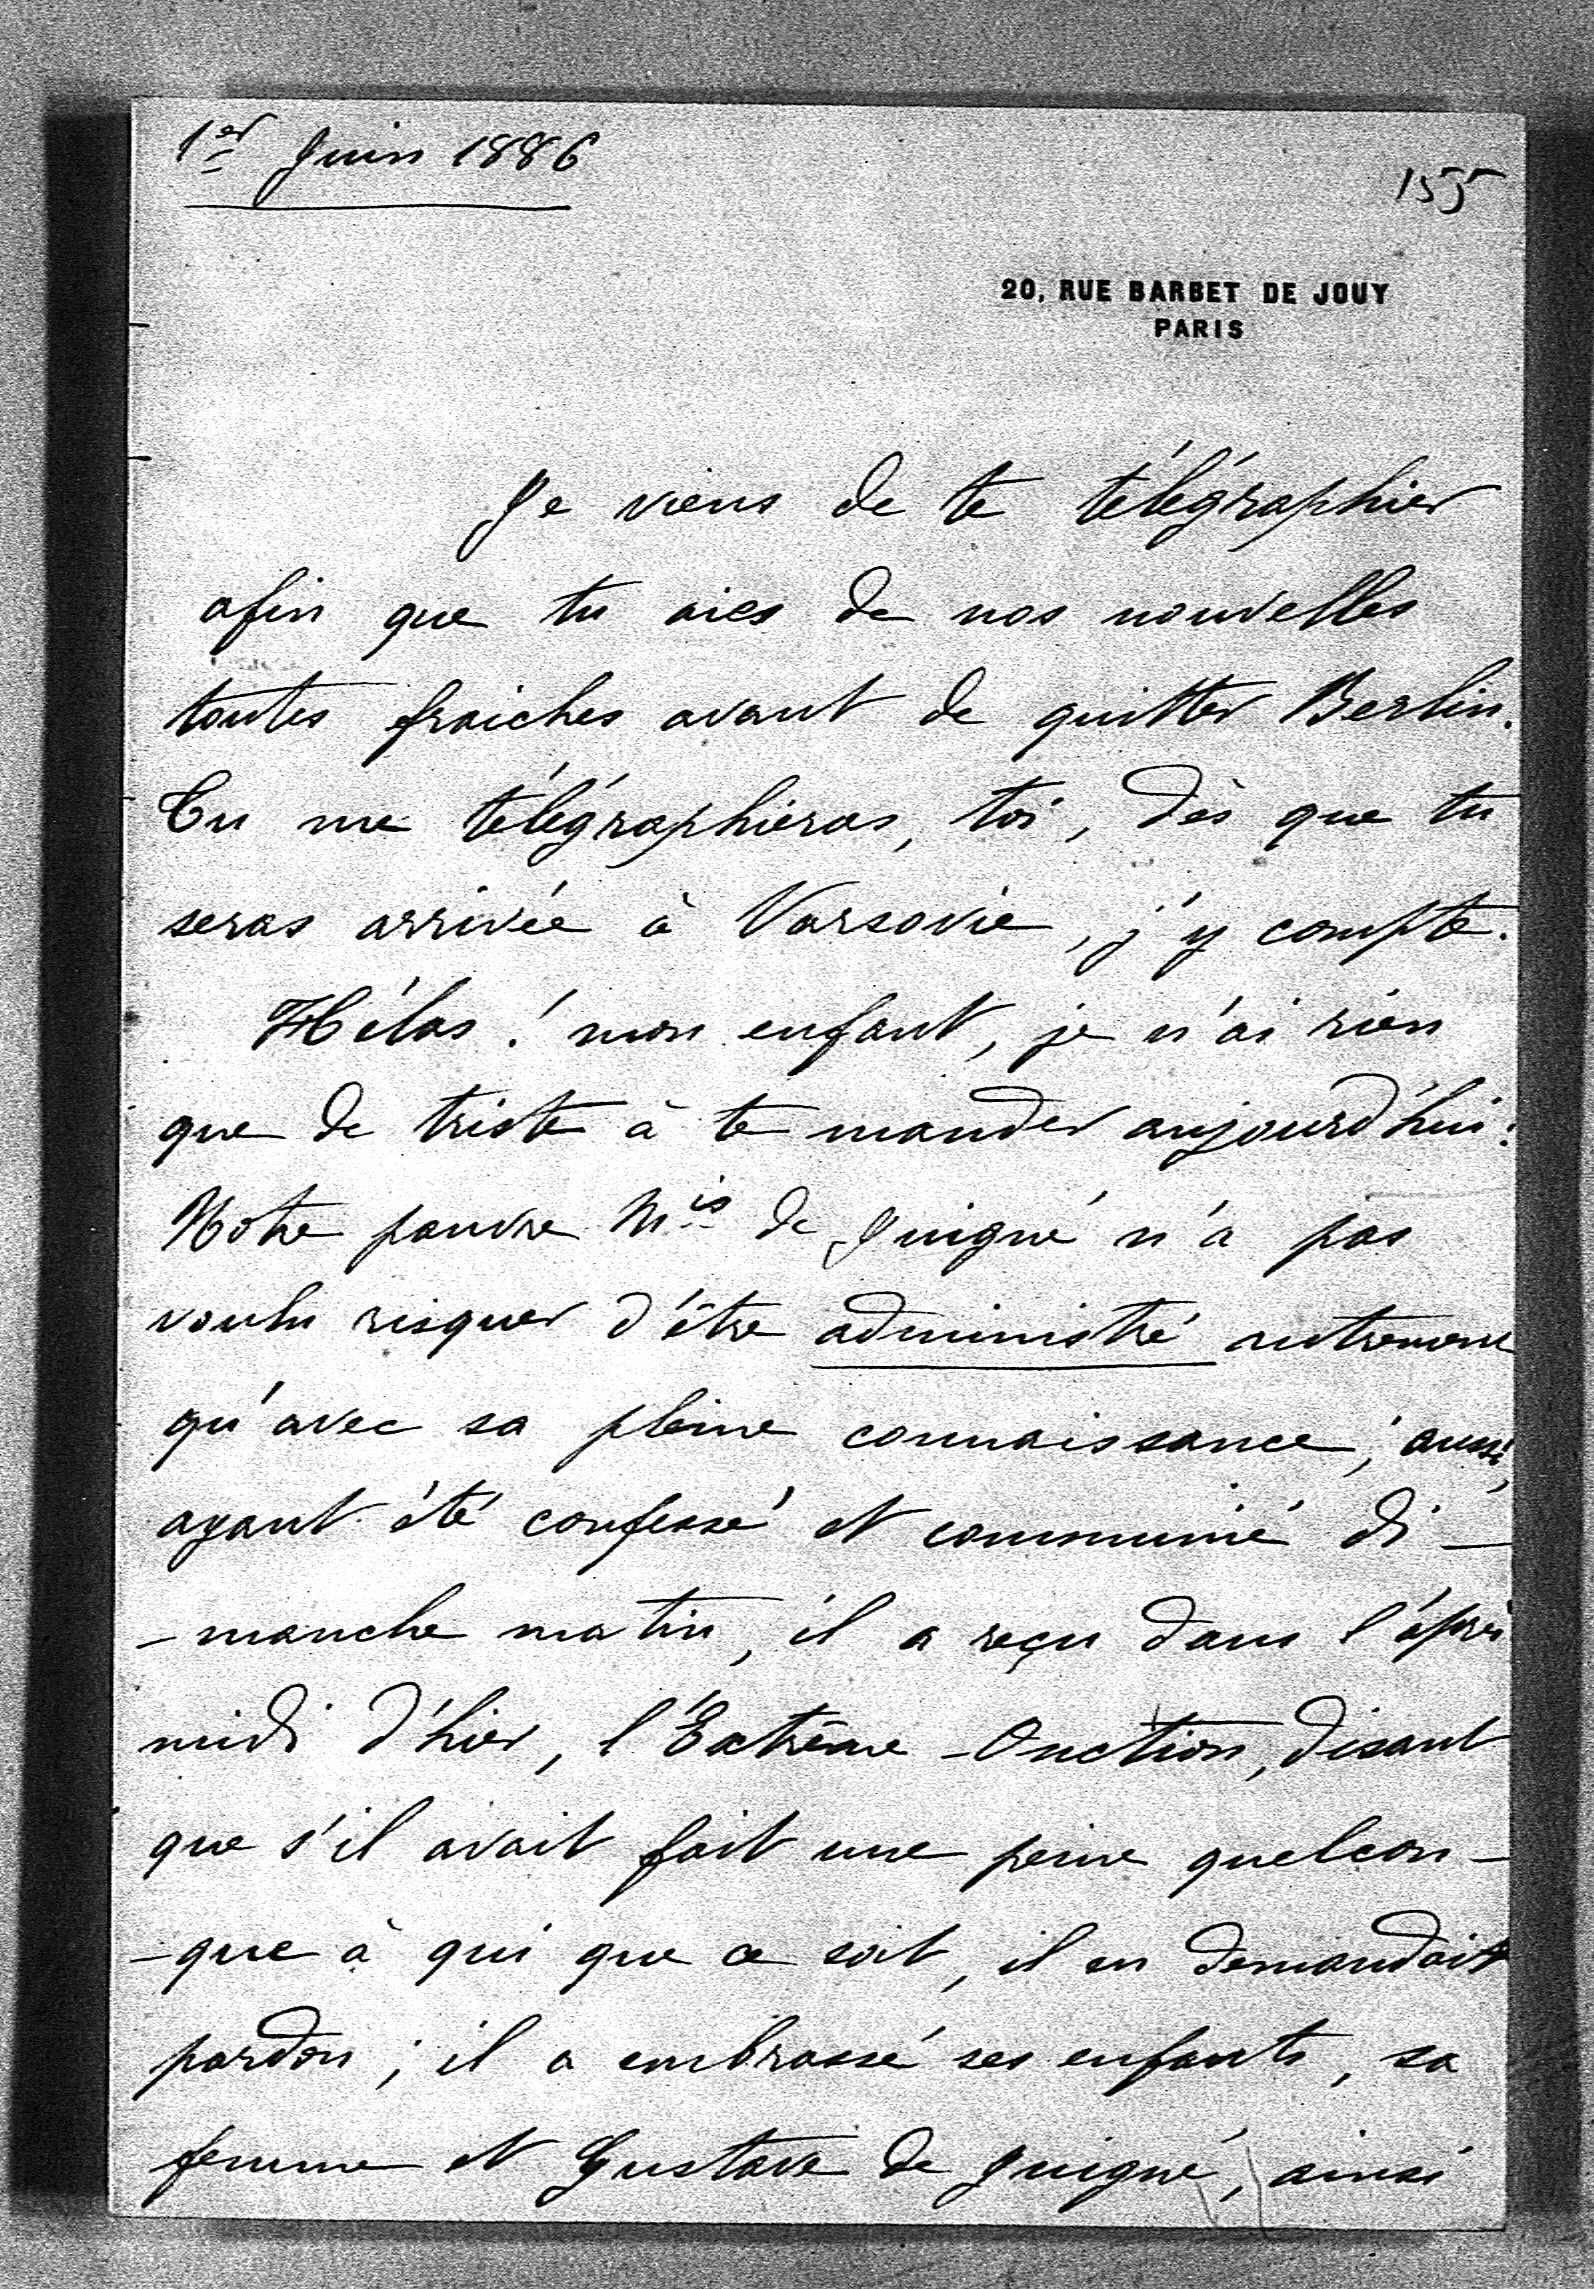 1er Juin 1886
155
20, RUE BARBET DE JOUY
PARIS
Je viens de te télégraphier
afin que tu aies de nos nouvelles
toutes fraiches avant de quitter Berlin.
Tu me télégraphieras, toi, dès que tu
seras arrivée à Varsovie, j'y compte.
Hélas ! mon enfant, je n'ai rien
que de triste à te mander aujourd'hui :
Notre pauvre Mis de Juigné n'a pas
voulu risquer d'être administré autrement
qu'avec sa pleine connaissance ; aussi,
ayant été confessé et communié di-
-manche matin, il a reçu dans l'après
midi d'hier, l'Extrême-Onction, disant
que s'il avait fait une peine quelcon-
-que à qui que ce soit, il en demandait
pardon ; il a embrassé ses enfants, sa
femme et Gustave de Juigné, ainsi